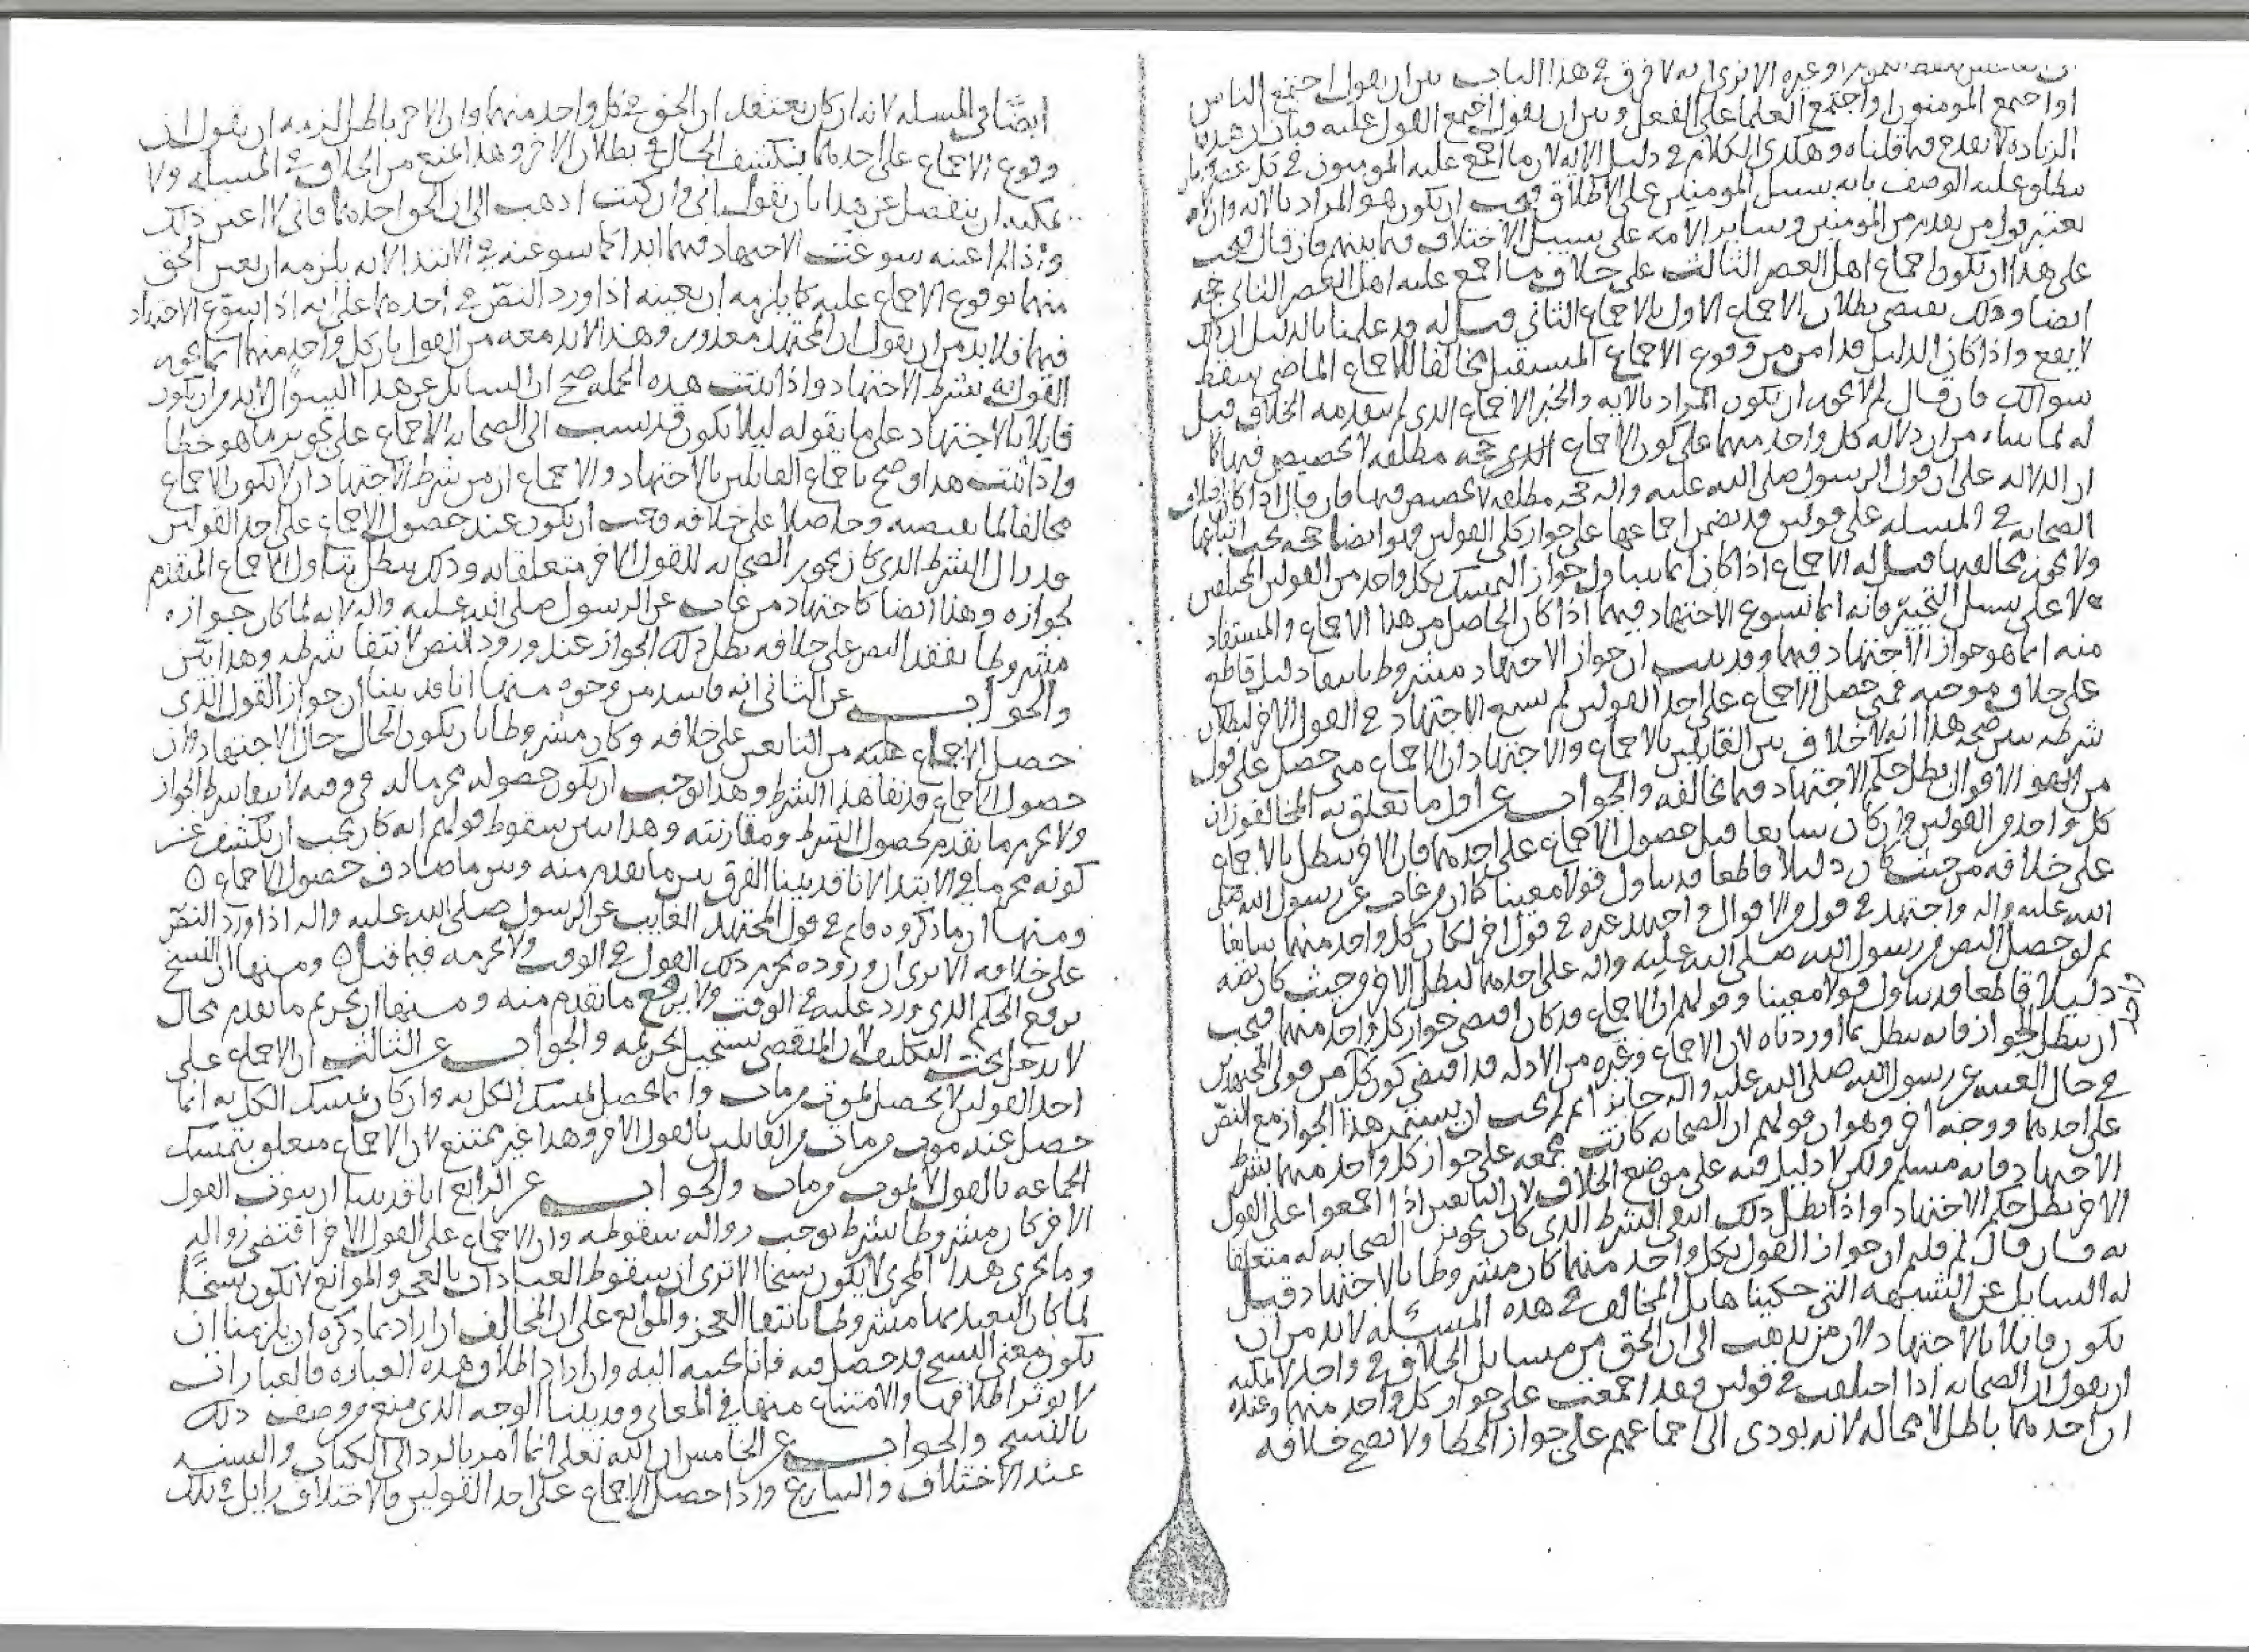 الا ترى انه لا فرق في هذا الباب بين ان يقول اجتمع الناس
او اجتمع المومنون او اجتمع العلما على الفعل وبين ان يقول اجمع القول عليه فبان ان هذه
الزياده لا تقدح فيما قلناه وهكذى الكلام في دليل الايه لان ما اجمع عليه المومنون في كل عصر
يطلق عليه الوصف بانه سبيل المومنين على الاطلاق فيجب ان يكون هو المراد بالايه وان لم
يعتبر قول من تقدم من المومنين وساير الامه على سبيل الاختلاف فيما بينهم فان قال فيجب
على هذا ان يكون اجماع اهل العصر الثالث على خلاف ما اجمع عليه اهل العصر الثاني حجه
ايضا وذلك يقتضي بطلان الاجماع الاول بالاجماع الثاني قيل له قد علمنا بالدليل ان ذلك
لا يقع واذا كان الدليل قد امن من وقوع الاجماع المستقبل مخالفا للاجماع الماضي سقط
سوالك فان قال لم لا يجوز ان يكون المراد بالايه والخبر الاجماع الذي لم يتقدمه الخلاف قيل
له لما بيناه من ان دلاله كل واحد منهما على كون الاجماع حجه مطلقه لا تخصيص فيها كما
ان الدلاله على ان قول الرسول صلى الله عليه واله حجه مطلقه لا تخصيص فيها فان قال اذا كان اختلاف
الصحابه في المسله على قولين قد تضمن اجماعها على جواز كلي القولين فهو ايضا حجه يجب اتباعها
ولا يجوز مخالفتها قيل له الاجماع اذا كان انما يتناول جواز التمسك بكل واحد من القولين المختلفين
لا على سبيل التخيير فانه انما يسوغ الاجتهاد فيهما اذا كان الحاصل من هذا الاجماع والمستفاد
منه انما هو جواز الاجتهاد فيهما وقد ثبت ان جواز الاجتهاد مشروط بانتفاء دليل قاطع
على خلاف موجبه فمتى حصل الاجماع على احد القولين لم يسغ الاجتهاد في القول الاخر لبطلان
شرطه يبين صحه هذا انه لا خلاف بين القايلين بالاجماع والاجتهاد ان الاجماع متى حصل على قول
من الاقوال بطل حكم الاجتهاد فيما يخالفه والجواب عن اول ما تعلق به المخالف ان
كل واحد من القولين وان كان سايغا قبل حصول الاجماع على احدهما فان الاخر يبطل بالاجماع
على خلافه من حيث كان دليلا قاطعا قد تناول قولا معينا كما ان من غاب عن رسول الله صلى
الله عليه واله واجتهد في قول من الاقوال واجتهد غيره في قول اخر لكان كل واحد منهما سايغا
ثم لو حصل النص من رسول الله صلى الله عليه واله على احدهما لبطل الاخر من حيث كان نصه
دليلا قاطعا قد تناول قولا معينا وقولهم ان الاجماع قد كان اقتضى جواز كل واحد منهما فيجب
واحد
ان يبطل الجواز فانه يبطل بما اوردناه لان الاجماع وغيره من الادله قد اقتضى كون كل من قولي المجتهدين
في حال الغيبه عن رسول الله صلى الله عليه واله جايزا ثم لم يجب ان يستمر هذا الجواز مع النص
على احدهما ووجه اخر وهو ان قولهم ان الصحابه كانت مجمعه على جواز كل واحد منهما بشرط
الاجتهاد فانه مسلم ولكن لا دليل فيه على موضع الخلاف لان التابعين اذا اجمعوا على القول
الاخر بطل حكم الاجتهاد واذا بطل ذلك انتفى الشرط الذي كان تجويز الصحابه له متعلقا
به فان قال لم قلتم ان جواز القول بكل واحد منهما كان مشروطا بالاجتهاد قيل
له السايل عن الشبهه التي حكيناها بل المخالف في هذه المسئله لا بد من ان
يكون قايلا بالاجتهاد لان من يذهب الى ان الحق من مسايل الخلاف في واحد لا يمكنه
ان يقول ان الصحابه اذا اختلفت في قولين فقد اجمعت على جواز كل واحد منهما وعنده
ان احدهما باطل لا محاله لانه يودي الى اجماعهم على جواز الخطا ولا يصح خلافه
ايضا في المسله لانه ان كان يعتقد ان الحق في كل واحد منهما وان الاخر باطل لزمه ان يقول ان
وقوع الاجماع على احدهما ينكشف الحال في بطلان الاخر وهذا يمنع من الخلاف في المسله ولا
يمكنه ان ينفصل عن هذا بان يقول اني وان كنت اذهب الى ان الحق احدهما فاني لا اعين ذلك
واذا لم اعينه سوغت الاجتهاد فيهما ابدا كما سوغته في الابتدا لانه يلزمه ان يعين الحق
منهما بوقوع الاجماع عليه كما يلزمه ان يعينه اذا ورد النص في احدهما على انه اذا سوغ الاجتهاد
فيهما فلا بد من ان يقول ان المجتهد معذور وهذا لا بد معه من القول بان كل واحد منهما انما يجوز
القول به بشرط الاجتهاد واذا ثبتت هذه الجمله صح ان السايل عن هذا السوال لا بد من ان يكون
قايلا بالاجتهاد على ما يقوله ليلا يكون قد نسب الى الصحابه الاجماع على تجويز ما هو خطا
واذا ثبت هذا وصح باجماع القايلين بالاجتهاد والاجماع ان من شرط الاجتهاد ان لا يكون الاجماع
مخالفا لما يقتضيه وحاصلا على خلافه فيجب ان يكون عند حصول الاجماع على احد القولين
قد زال الشرط الذي كان تجويز الصحابه للقول الاخر متعلقا به وذلك يبطل تناول الاجماع المتقدم
لجوازه وهذا ايضا كاجتهاد من غاب عن الرسول صلى الله عليه واله لانه لما كان جوازه
مشروطا بفقد النص على خلافه بطل ذلك الجواز عند ورود النص لانتفا شرطه وهذا بين
والجواب عن الثاني انه فاسد من وجوه منها انا قد بينا ان جواز القول الذي
حصل الاجماع عليه من التابعين على خلافه وكان مشروطا بان يكون الحال حال الاجتهاد وان
حصول الاجماع قد نفا هذا الشرط وهذا يوجب ان يكون حصوله محرما له في وقته لانتفا شرط الجواز
ولا يحرم ما تقدم لحصول الشرط ومقارنته وهذا يبين سقوط قولهم انه كان يجب ان يكشف عن
كونه محرما في الابتدا لانا قد بينا الفرق بين ما تقدم منه وبين ما صادف حصول الاجماع ٥
ومنها ان ما ذكروه قايم في قول المجتهد الغايب عن الرسول صلى الله عليه واله اذا ورد النص
على خلافه الا ترى ان وروده يحرم ذلك القول في الوقت ولا يحرمه فيما قبل ٥ ومنها ان النسخ
يرفع الحكم الذي ورد عليه في الوقت ولا يرفع ما تقدم منه ومنها ان تحريم ما تقدم محال
لا يدخل تحت التكليف لان المنقضي يستحيل تحريمه والجواب عن الثالث ان الاجماع على
احد القولين لا يحصل لموت من مات وانما يحصل لتمسك الكل به وان كان تمسك الكل به انما
حصل عند موت من مات من القايلين بالقول الاخر وهذا غير ممتنع لان الاجماع متعلق بتمسك
الجماعه بالقول لا بموت من مات والجواب عن الرابع انا قد بينا ان ثبوت القول
الاخر كان مشروطا بشرط يوجب زواله سقوطه وان الاجماع على القول الاخر اقتضى زواله
وما يجري هذا المجرى لا يكون نسخا الا ترى ان سقوط العبادات بالعجز والموانع لا يكون نسخا
لما كان التعبد بها مشروطا بانتفا العجز والموانع على ان المخالف ان اراد بما ذكره ان يلزمنا ان
يكون معنى النسخ قد حصل فيه فانا نجيبه اليه وان اراد اطلاق هذه العباره فالعبارات
لا يوثر اطلاقها والامتناع منها في المعاني وقد بينا الوجه الذي منع من وصف ذلك
بالنسخ والجواب عن الخامس ان الله تعالى انما امر بالرد الى الكتاب والسنه
عند الاختلاف والتنازع واذا حصل الاجماع على احد القولين فالاختلاف زايل في تلك